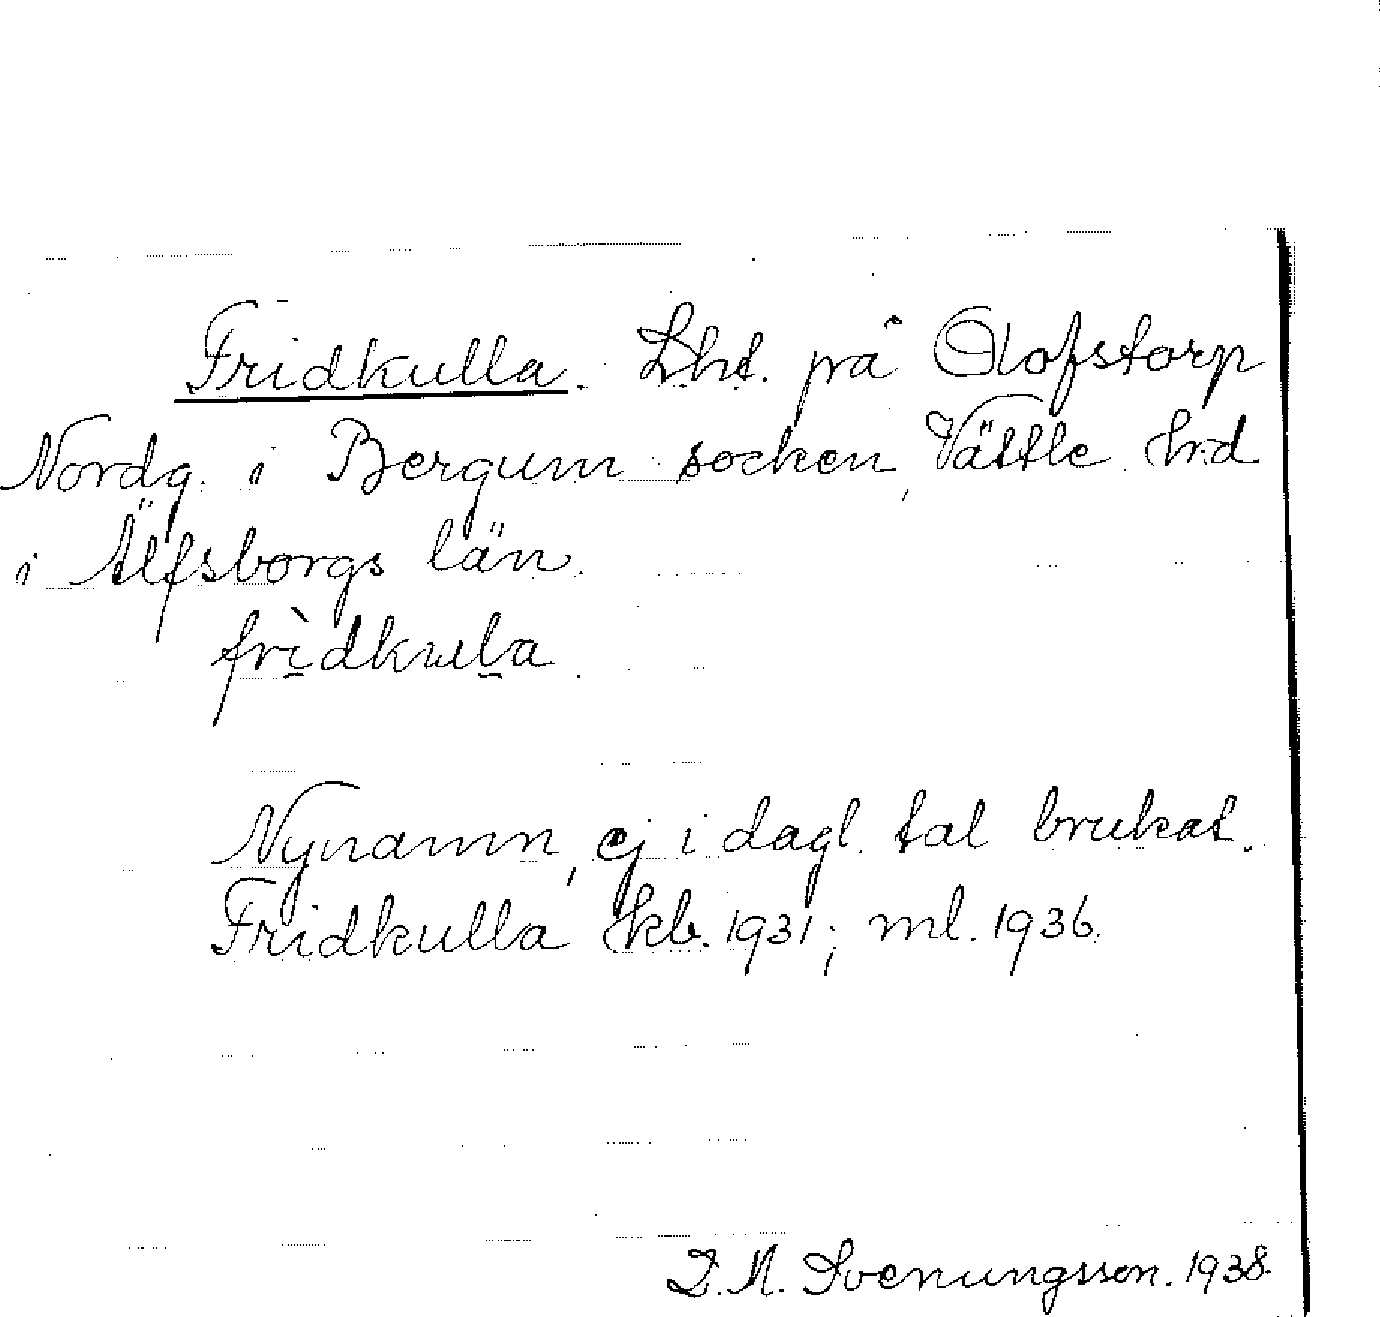 Fridkulla. Lht. på Olofstorp
Nordg. i Bergum socken, Vättle hrd
i Älfsborgs län.
frìdkula
Nynamn, ej i dagl. tal brukat.
Fridkulla hkb. 1931; ml. 1936.
D. M. Svenungsson. 1938